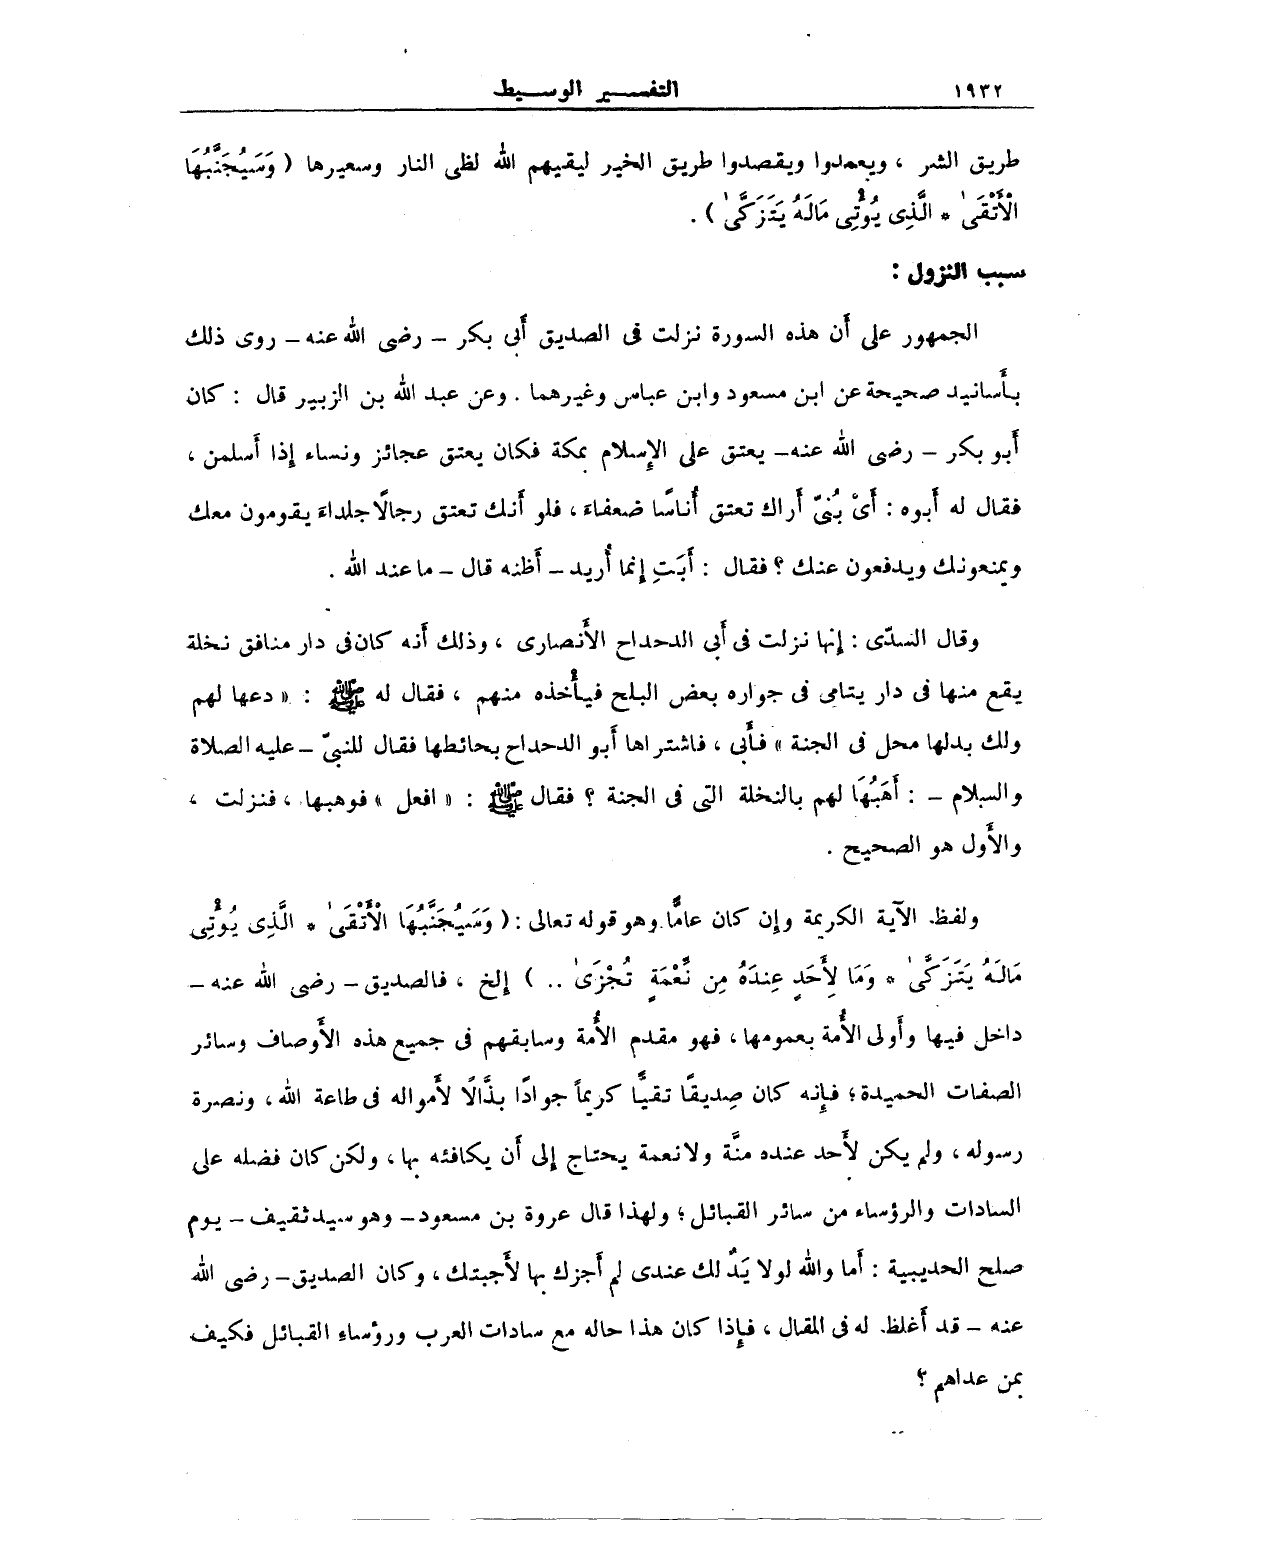 ١٩٣٢ التفسير الوسيط
طريق الشر ، ويعمدوا ويقصدوا طريق الخير ليقيهم الله لظى النار وسعيرها ( وَسَيُجَنَّبُهَا
الْأَتْقَىٰ * الَّذِى يُؤْتِى مَالَهُ يَتَزَكَّىٰ ) .
سبب النزول :
الجمهور على أن هذه السورة نزلت فى الصديق أبى بكر – رضى الله عنه – روى ذلك
بأسانيد صحيحة عن ابن مسعود وابن عباس وغيرهما . وعن عبد الله بن الزبير قال : كان
أبو بكر – رضى الله عنه – يعتق على الإسلام بمكة فكان يعتق عجائز ونساء إذا أسلمن ،
فقال له أبوه : أىْ بُنىّ أراك تعتق أُناسًا ضعفاءَ ، فلو أنك تعتق رجالًا جلداءَ يقومون معك
ويمنعونك ويدفعون عنك ؟ فقال : أَبَتِ إنما أُريد – أظنه قال – ما عند الله .
وقال السدّى : إنها نزلت فى أبى الدحداح الأنصارى ، وذلك أنه كان فى دار منافق نخلة
يقع منها فى دار يتامى فى جواره بعض البلح فيأْخذه منهم ، فقال له ﷺ : « دعها لهم
ولك بدلها محل فى الجنة » فأبى ، فاشتراها أبو الدحداح بحائطها فقال للنبىّ – عليه الصلاة
والسلام – : أَهَبُهَا لهم بالنخلة التى فى الجنة ؟ فقال ﷺ : « افعل » فوهبها ، فنزلت ،
والأول هو الصحيح .
ولفظ الآية الكريمة وإن كان عامًّا وهو قوله تعالى : ( وَسَيُجَنَّبُهَا الْأَتْقَىٰ * الَّذِى يُؤْتِى
مَالَهُ يَتَزَكَّىٰ * وَمَا لِأَحَدٍ عِندَهُ مِن نِّعْمَةٍ تُجْزَىٰ .. ) إلخ ، فالصديق – رضى الله عنه –
داخل فيها وأولى الأُمة بعمومها ، فهو مقدم الأُمة وسابقهم فى جميع هذه الأوصاف وسائر
الصفات الحميدة ؛ فإنه كان صِديقًا تقيًّا كريماً جوادًا بذَّالًا لأمواله فى طاعة الله ، ونصرة
رسوله ، ولم يكن لأحد عنده منَّة ولا نعمة يحتاج إلى أن يكافئه بها ، ولكن كان فضله على
السادات والرؤساء من سائر القبائل ؛ ولهذا قال عروة بن مسعود – وهو سيد ثقيف – يوم
صلح الحديبية : أما والله لولا يَدٌ لك عندى لم أجزك بها لأجبتك ، وكان الصديق – رضى الله
عنه – قد أغلظ له فى المقال ، فإذا كان هذا حاله مع سادات العرب ورؤساء القبائل فكيف
بمن عداهم ؟